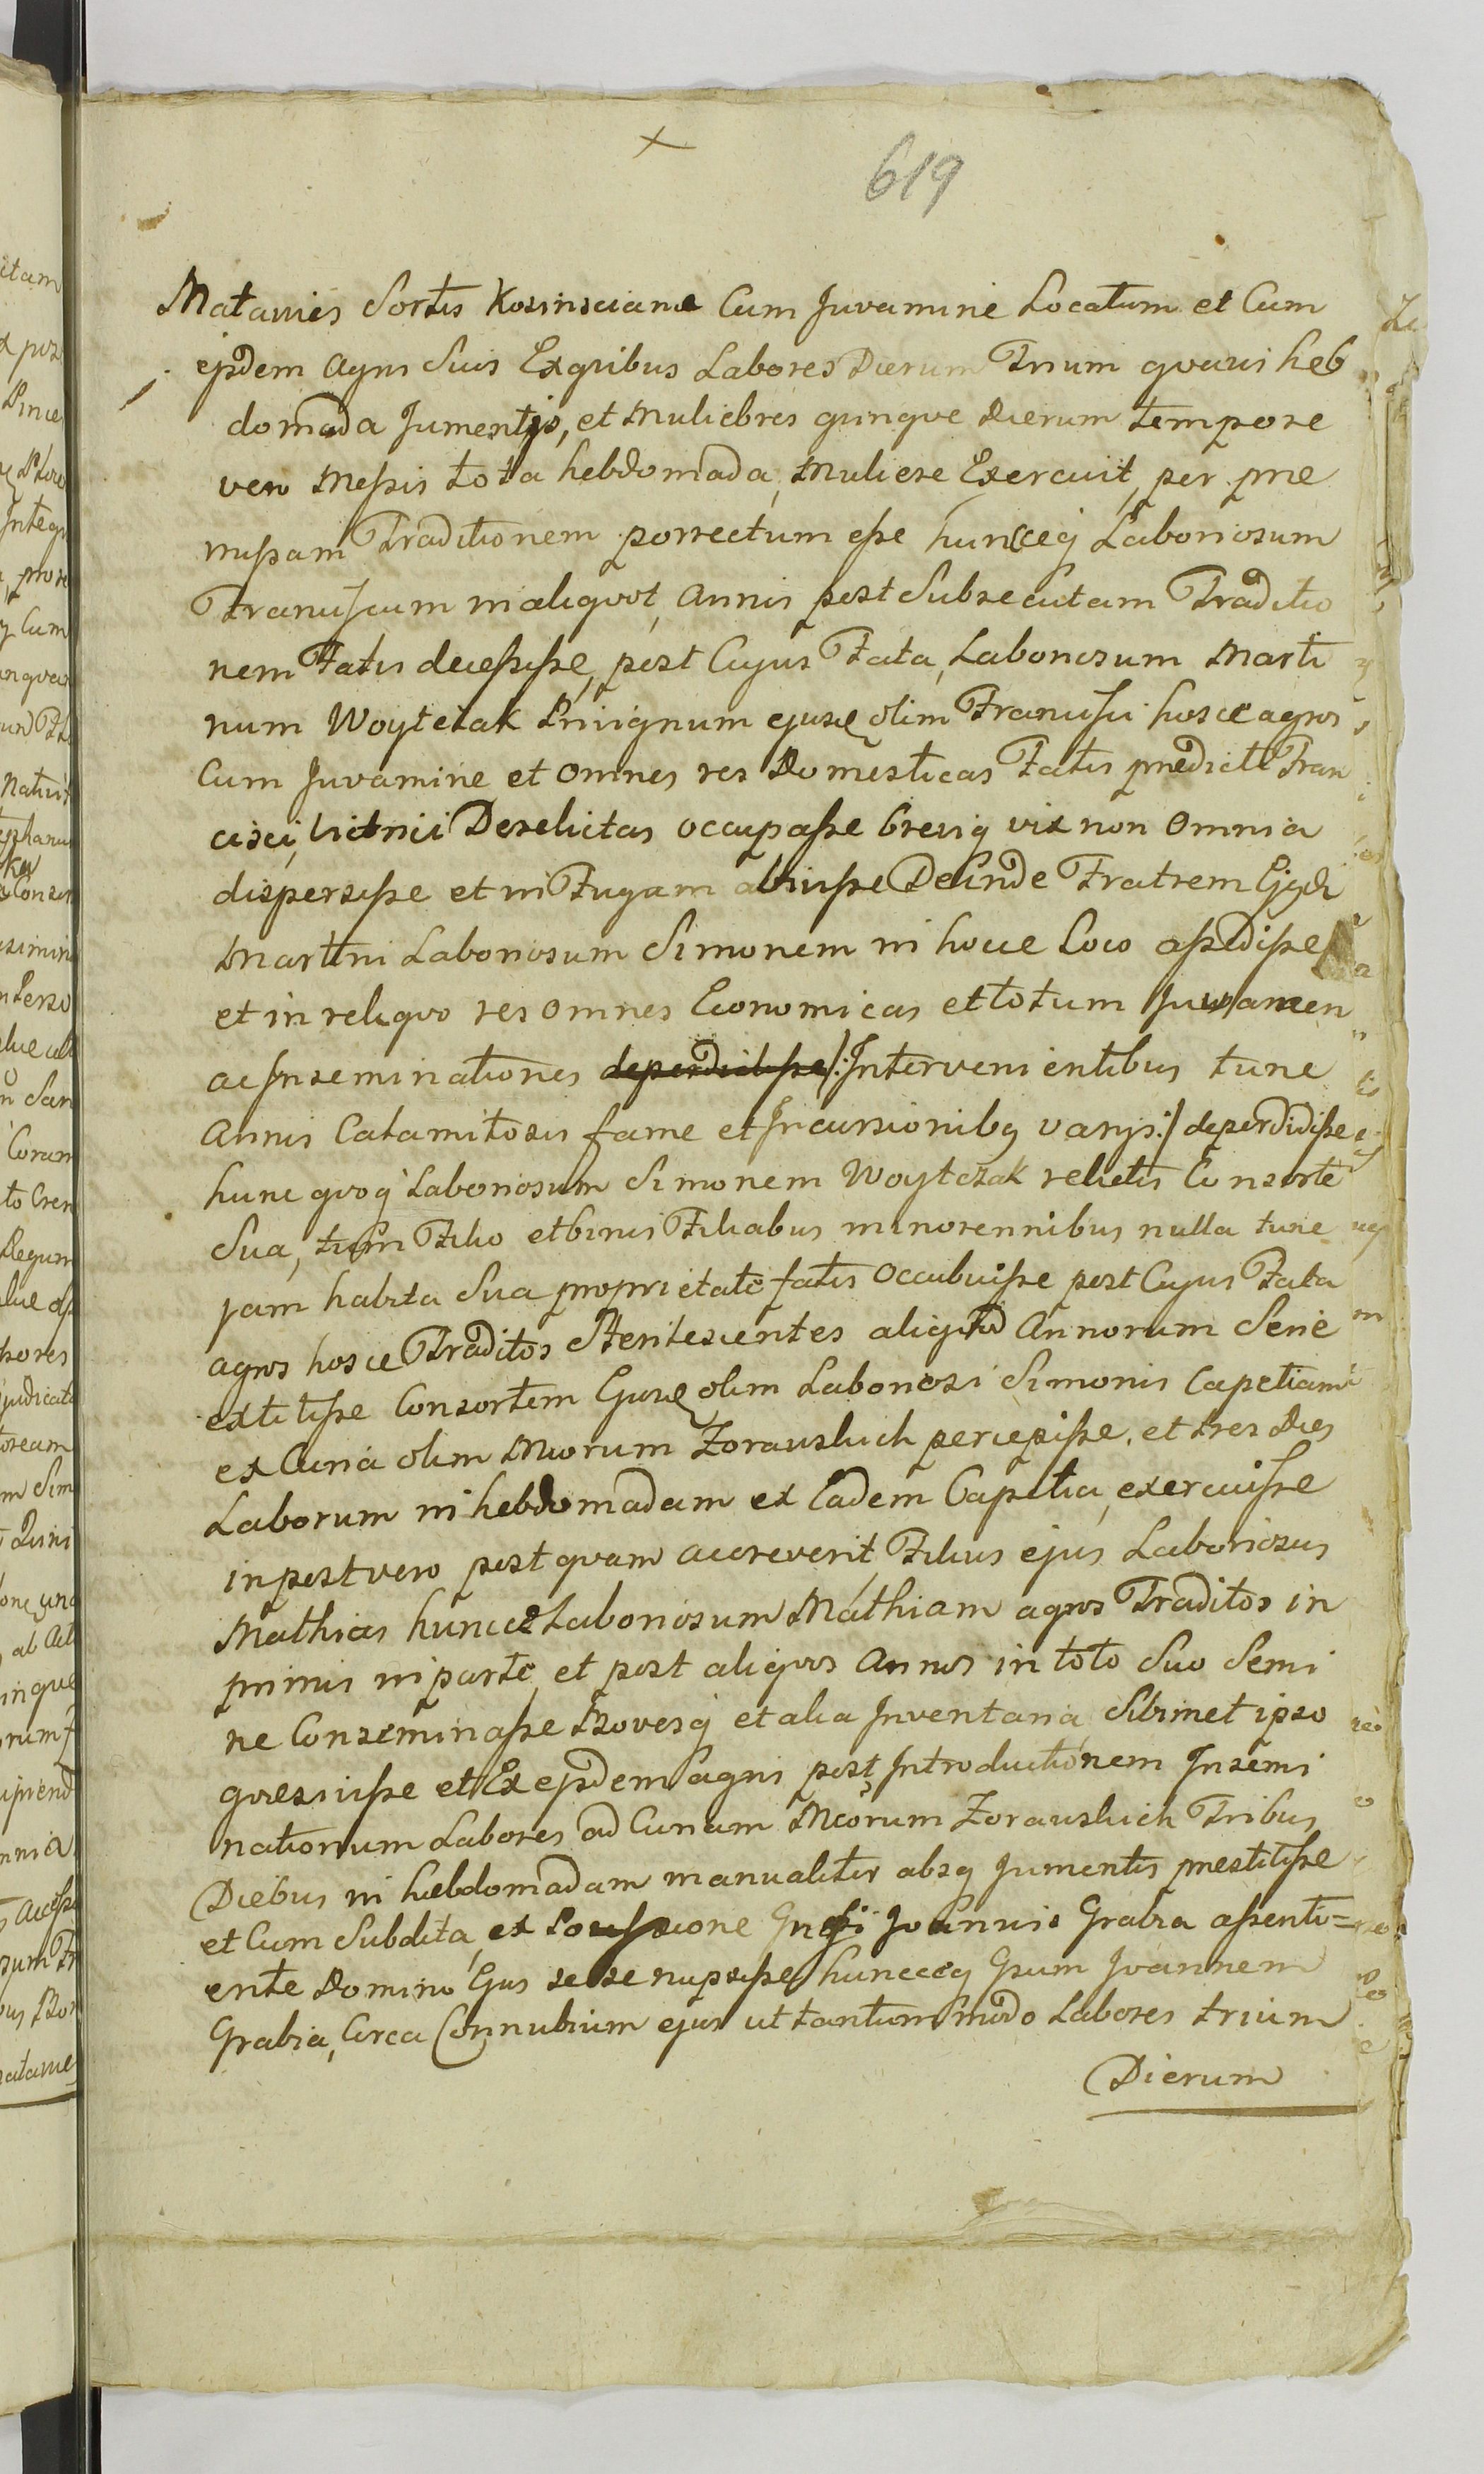 619
Mataniei Sortis Kosinsciane Cum Juvamine Locatum et Cum
ejsdem Agris Suis Exqribus Labores Dierum Trium qvavis heb
domada Jumentis, et Muliebres qvinqve dierum tempore
vero Messis tota hebdomada, Muliere Exercuit, per prae
missam Traditionem porrectum esse huncceq Laboriosum
Franciscum in aliqvot, Annis post Subsecutam Traditio
nem Fatis decessisse, post Cujus Fata, Laboriosum Marti
num Woytczak Privignum ejusq olim Francisci hosce agros
Cum Juvamine et Omnes res Domesticas Fatis praedicti Fran
cisci, Derelictas occupasse breviq vix non Omnia
dispersisse et in Fugam abivisse Deinde Fratrem Ejsdi
Martini Laboriosum Simonem in hocce Loco assedisse
et in reliqvo res omnes Economicas et totum Juvamen
ac Inseminationes deperdidisse /:Intervenientibus tunc
Annis Calamitosis fame et Incursionibq varijs:/ deperdidisse
hunc qvoq Laboriosum Simonem Woytczak relictis Consorte
Sua, tum Filio et binis Filiabus minorennibus nulla tunc
jam habita Sua proprietate fatis occubuisse post Cujus Fata
agros hosce Traditos Sterilescentes aliqvod Annorum Serie
extitisse Consortem Ejusq olim Laboriosi Simonis Capetiam
ex Curia olim Mcorum Zorawskich percepisse, et tres Dies
Laborum in hebdomadam ex Eadem Capetia, exercuisse
inpost vero post qvam accreverit, Filius ejus Laboriosus
Mathias huncce Laboriosum Mathiam agros Traditos in
primis in parte, et post aliqvos Annos in toto Suo Semi
ne Conseminasse Bovesq et alia Inventaria Sibimet ipso
qvesivisse et Ex ejsdem agris post Introductionem Insemi
nationum Labores ad Curiam Mcorum Zorawskich Tribus
Diebus in hebdomadam manualiter absq Jumentis prestitisse
et Cum Subdita, ex Joannis Grabia assenti=
ente Domino Ejus sese nupsisse huncceq Gsum Joannem
Grabia, Circa Connubium ejus ut tantummodo Labores trium
Dierum